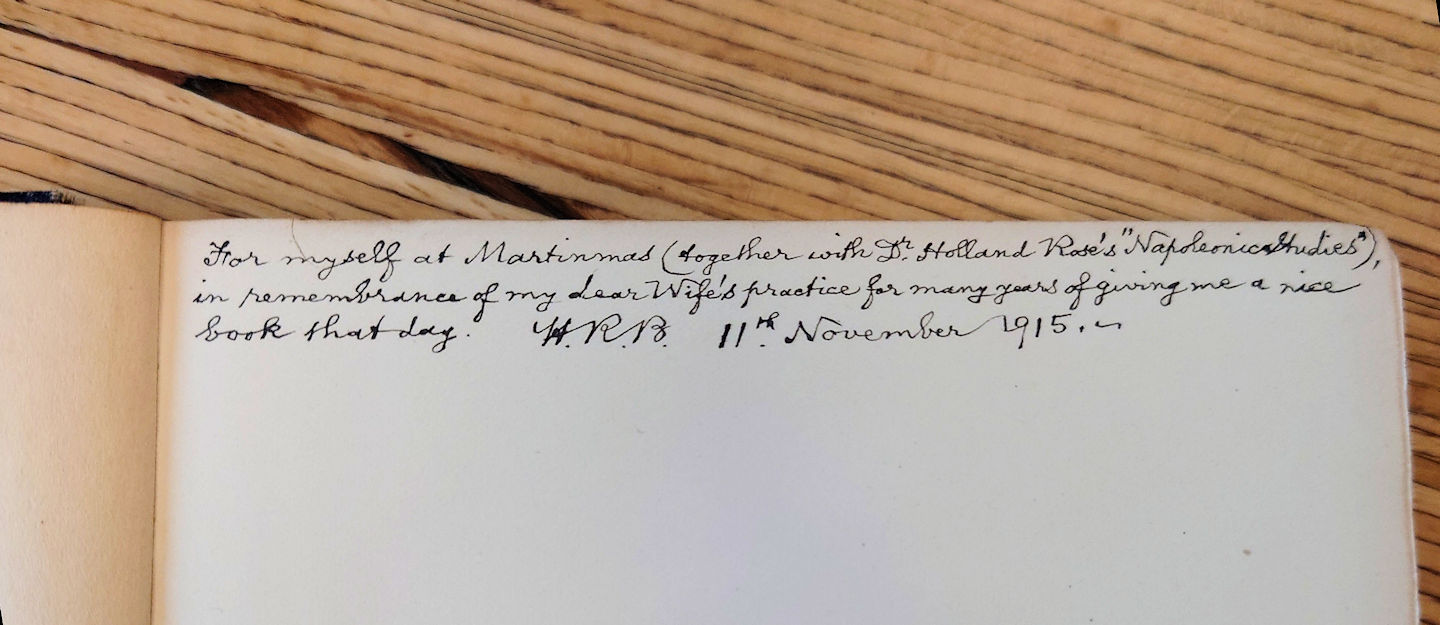 For myself at Martinmas (together with Dr. Holland Rose's "Napoleonic Studies"),
in remembrance of my dear Wife's practice for many years of giving me a nice
book that day. H.R.B. 11th. November 1915. ~